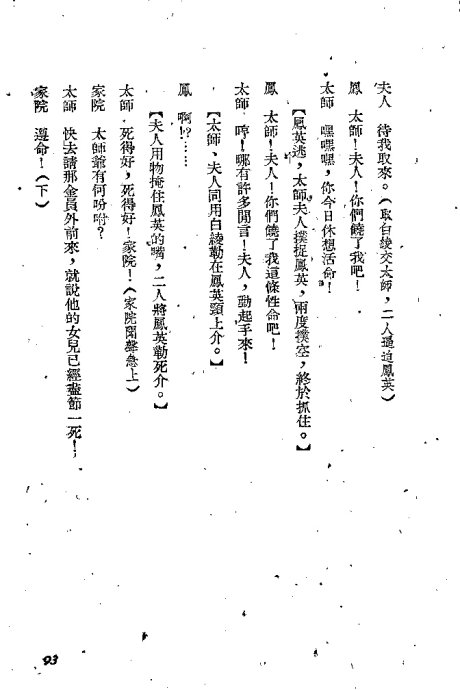 夫人　待我取來。（取白綾交太師，二人逼迫鳳英）
鳳　太師！夫人！你們饒了我吧！
太師　嘿嘿嘿，你今日休想活命！
【鳳英逃，太師夫人撲捉鳳英，兩度撲空，終於抓住。】
鳳　太師！夫人！你們饒了我這條性命吧！
太師　哼！哪有許多閒言！夫人，動起手來！
【太師、夫人同用白綾勒在鳳英頸上介。】
鳳　啊！？……
【夫人用物掩住鳳英的嘴，二人將鳳英勒死介。】
太師　死得好，死得好！家院！（家院聞聲急上）
家院　太師爺有何吩咐？
太師　快去請那金員外前來，就說他的女兒已經盡節一死！
家院　遵命！（下）
93